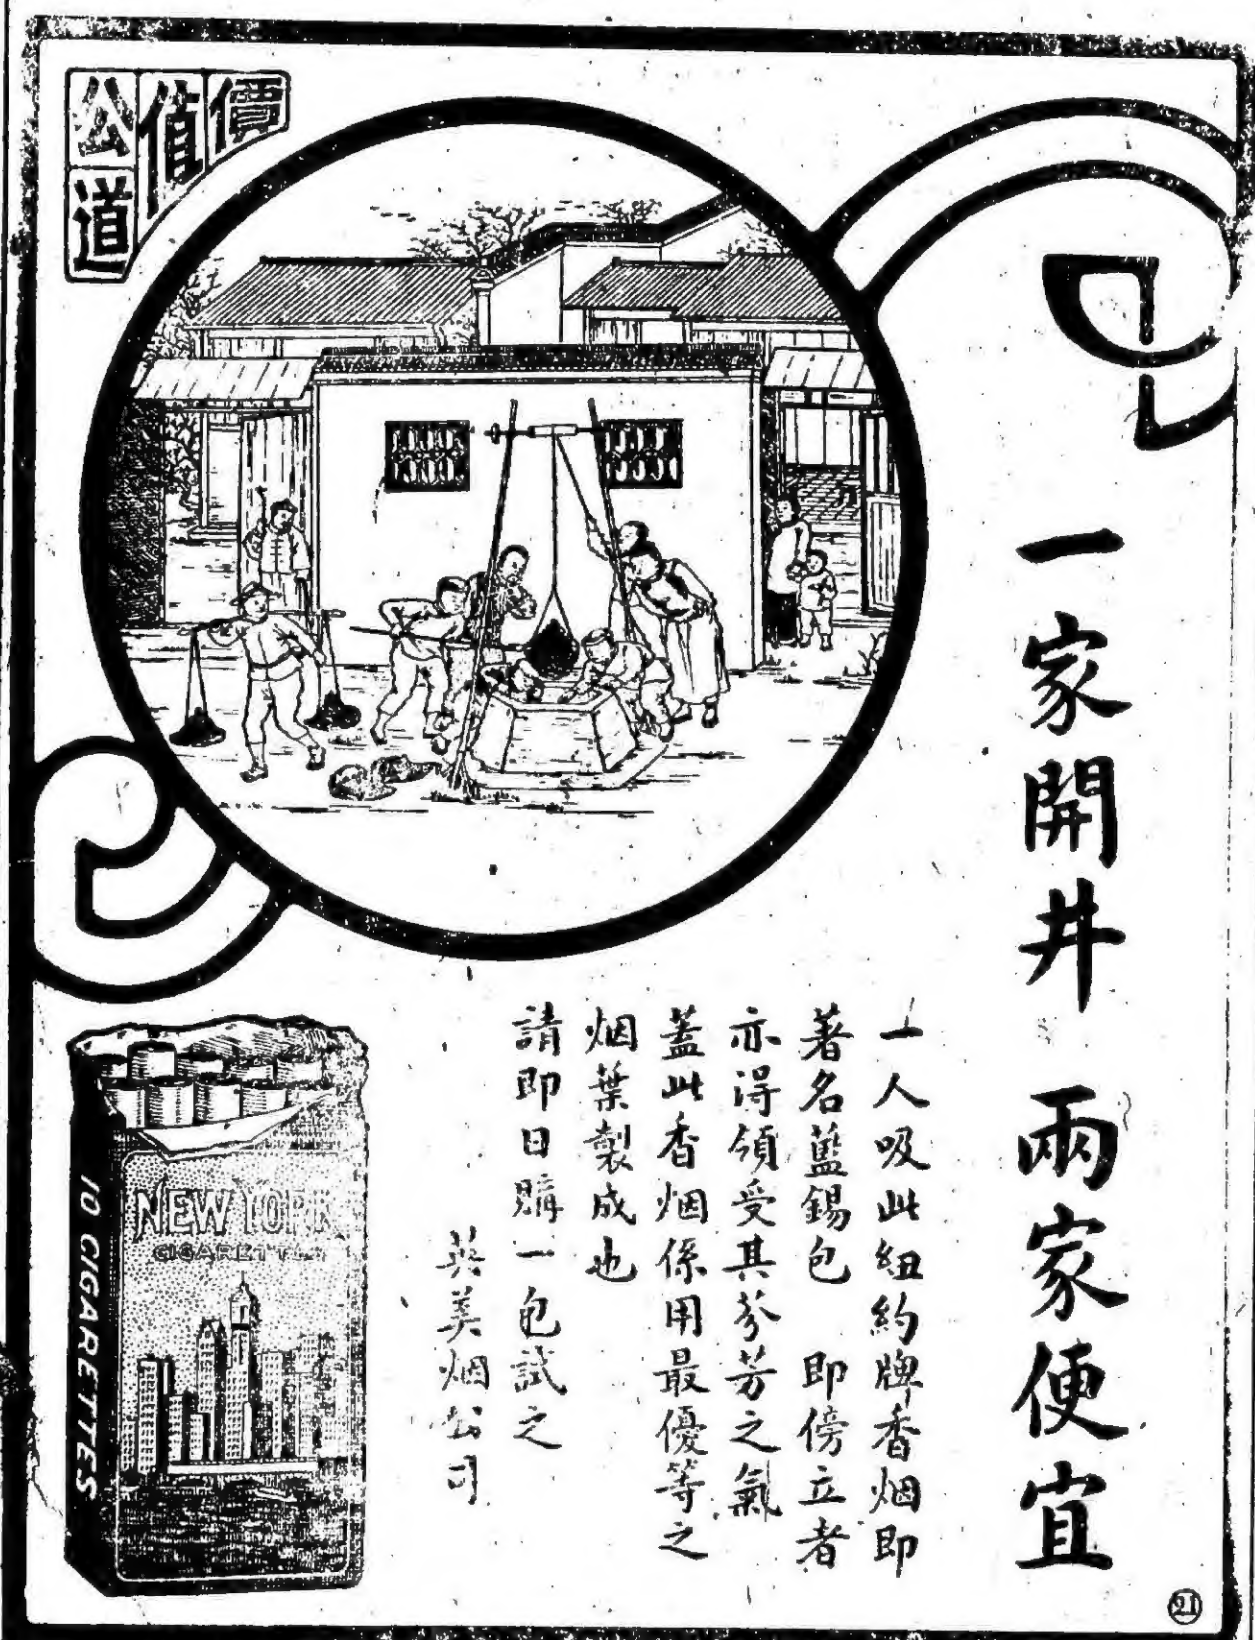 價值公道
一家開井 兩家便宜
一人吸此紐約牌香烟即
著名藍錫包 即傍立者
亦得領受其芬芳之氣
蓋此香烟係用最優等之
烟葉製成也
請即日購一包試之
英美烟公司
NEW YORK
CIGARETTES
10 CIGARETTES
21